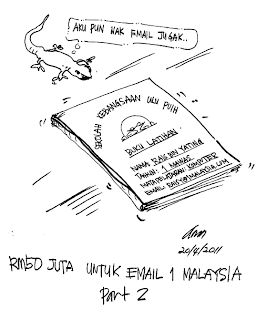 AKU PUN NAK EMAIL JUGAK..
SEKOLAH KEBANGSAAN ULU PUIH
BUKU LATIHAN
NAMA
BIN YATING
TAHUN: 1 MAWAR
MATAPELAJARAN: KOMPUTER
EMAIL:
20/4/2011
RM50 JUTA UNTUK EMAIL 1 MALAYSIA
Part 2